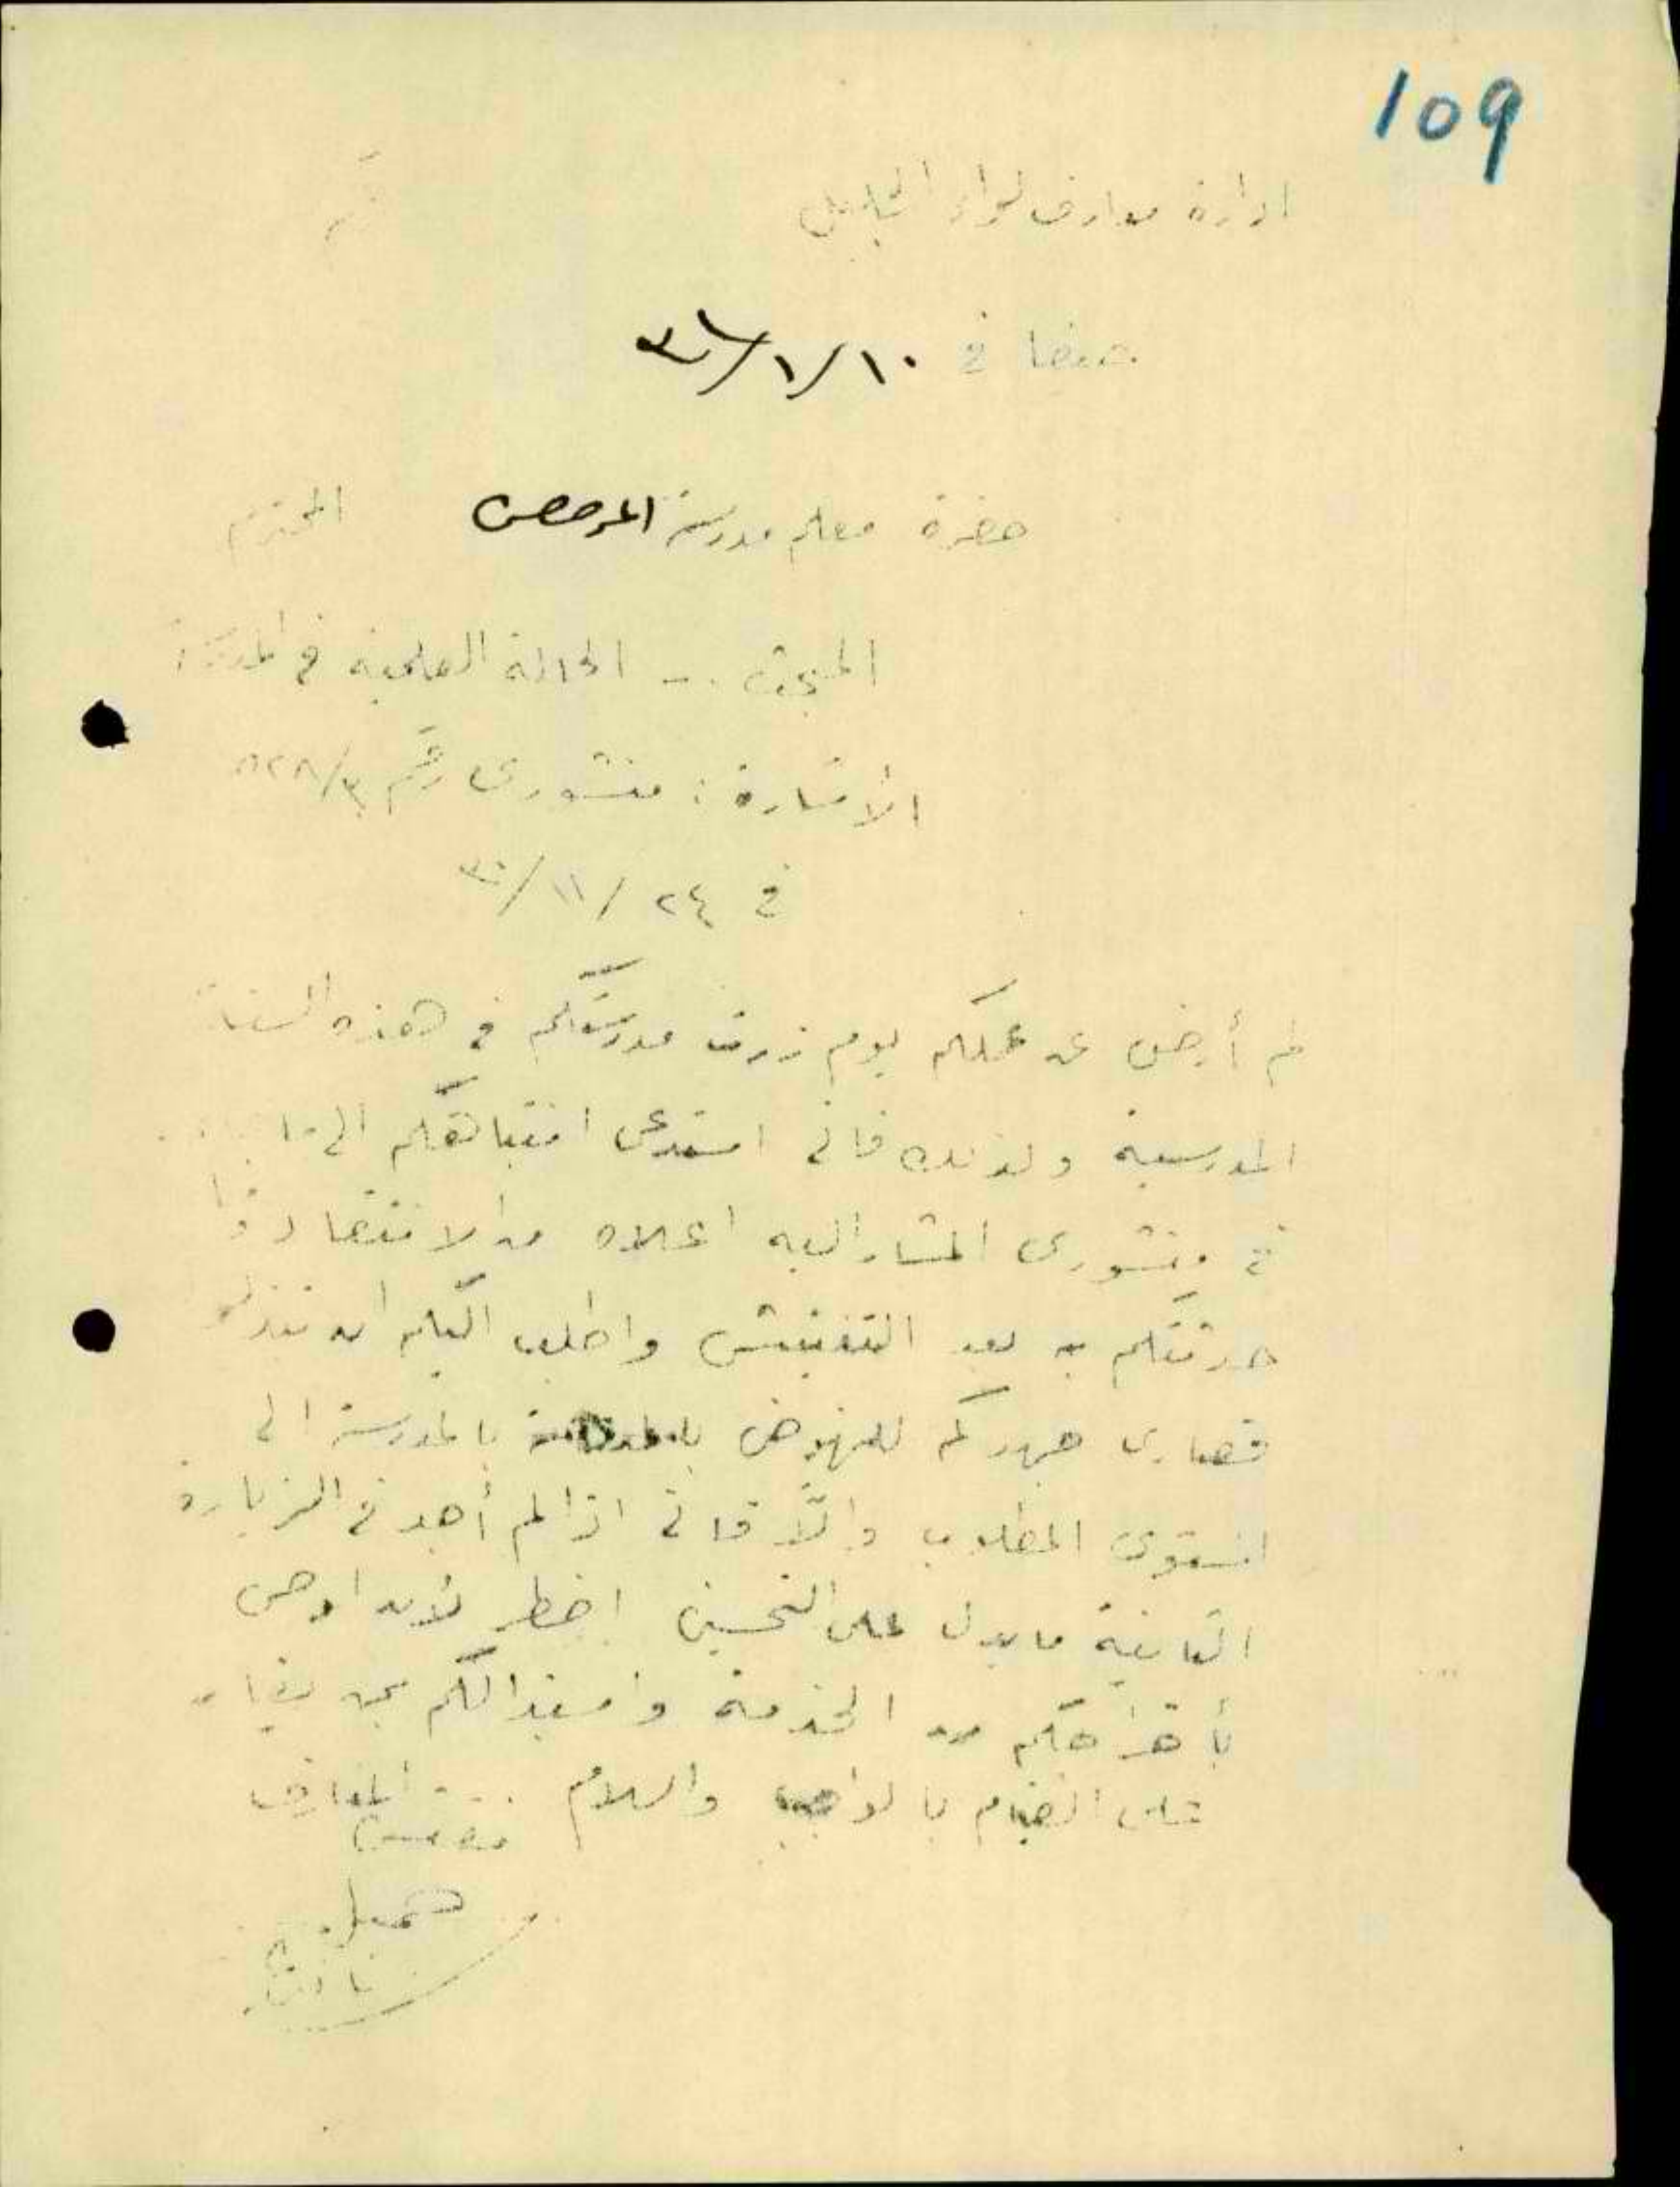 109
ادارة معارف لواء الجليل
في ٣١/١/١٠
حضرة معلم مدرسة المحترم
المبحث :- الحالة العلمية في المدرسة
الاشارة : منشوري رقم
في ٢٤ / ١١ / ٣٠
لم أرض عن عملكم يوم زرت مدرستكم في هذه السنة
المدرسية ولذلك فاني استدعي انتباهكم الى ما
في منشوري المشار اليه اعلاه من
به بعد التفتيش واطلب اليكم ان تبذلوا
قصارى جهدكم للنهوض بالمدرسة الى
المستوى المطلوب والّا فاني اذا لم أجد في الزيارة
الثانية ما يدل على التحسين اضطر لأن اوصي
بأخراجكم من الخدمة واستبدالكم بمن
على القيام بالواجب والسلام المعارف